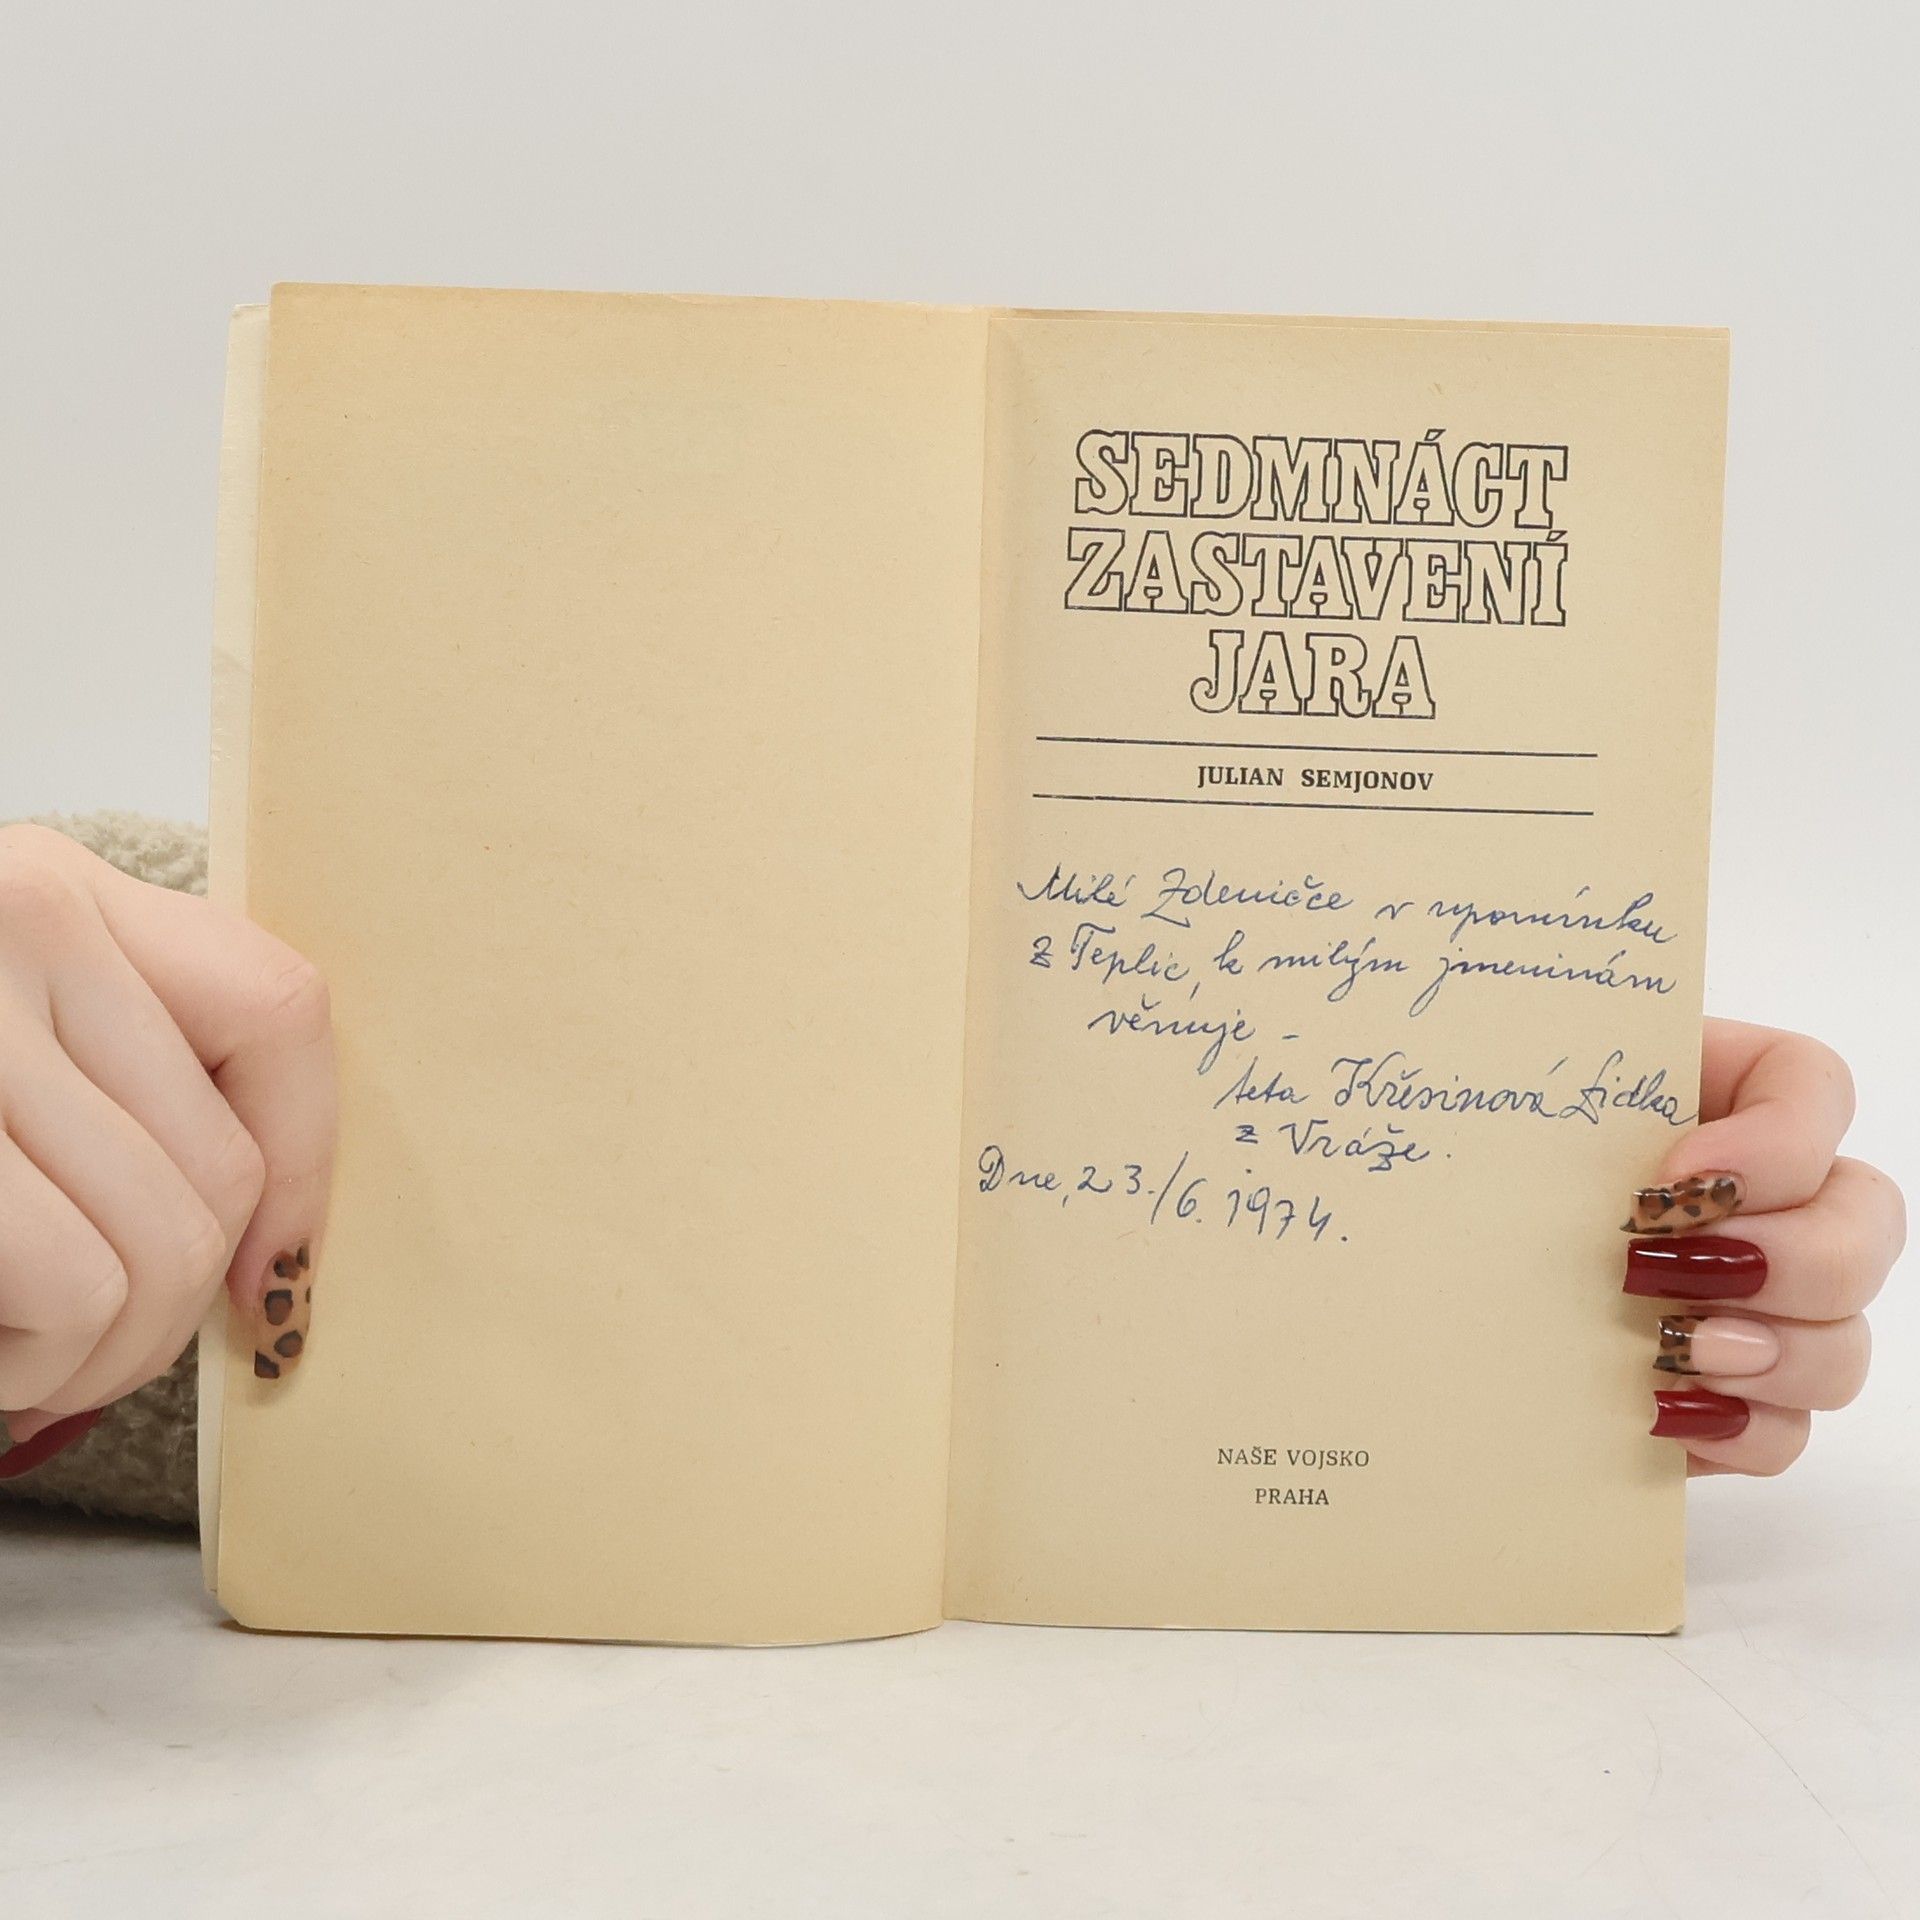 SEDMNÁCT
ZASTAVENÍ
JARA
JULIAN SEMJONOV
Milé Zdeničce v upomínku
z Teplic, k milým jmeninám
věnuje -
teta Křesinová Lidka
z Vráže.
Dne, 23./6. 1974.
NAŠE VOJSKO
PRAHA